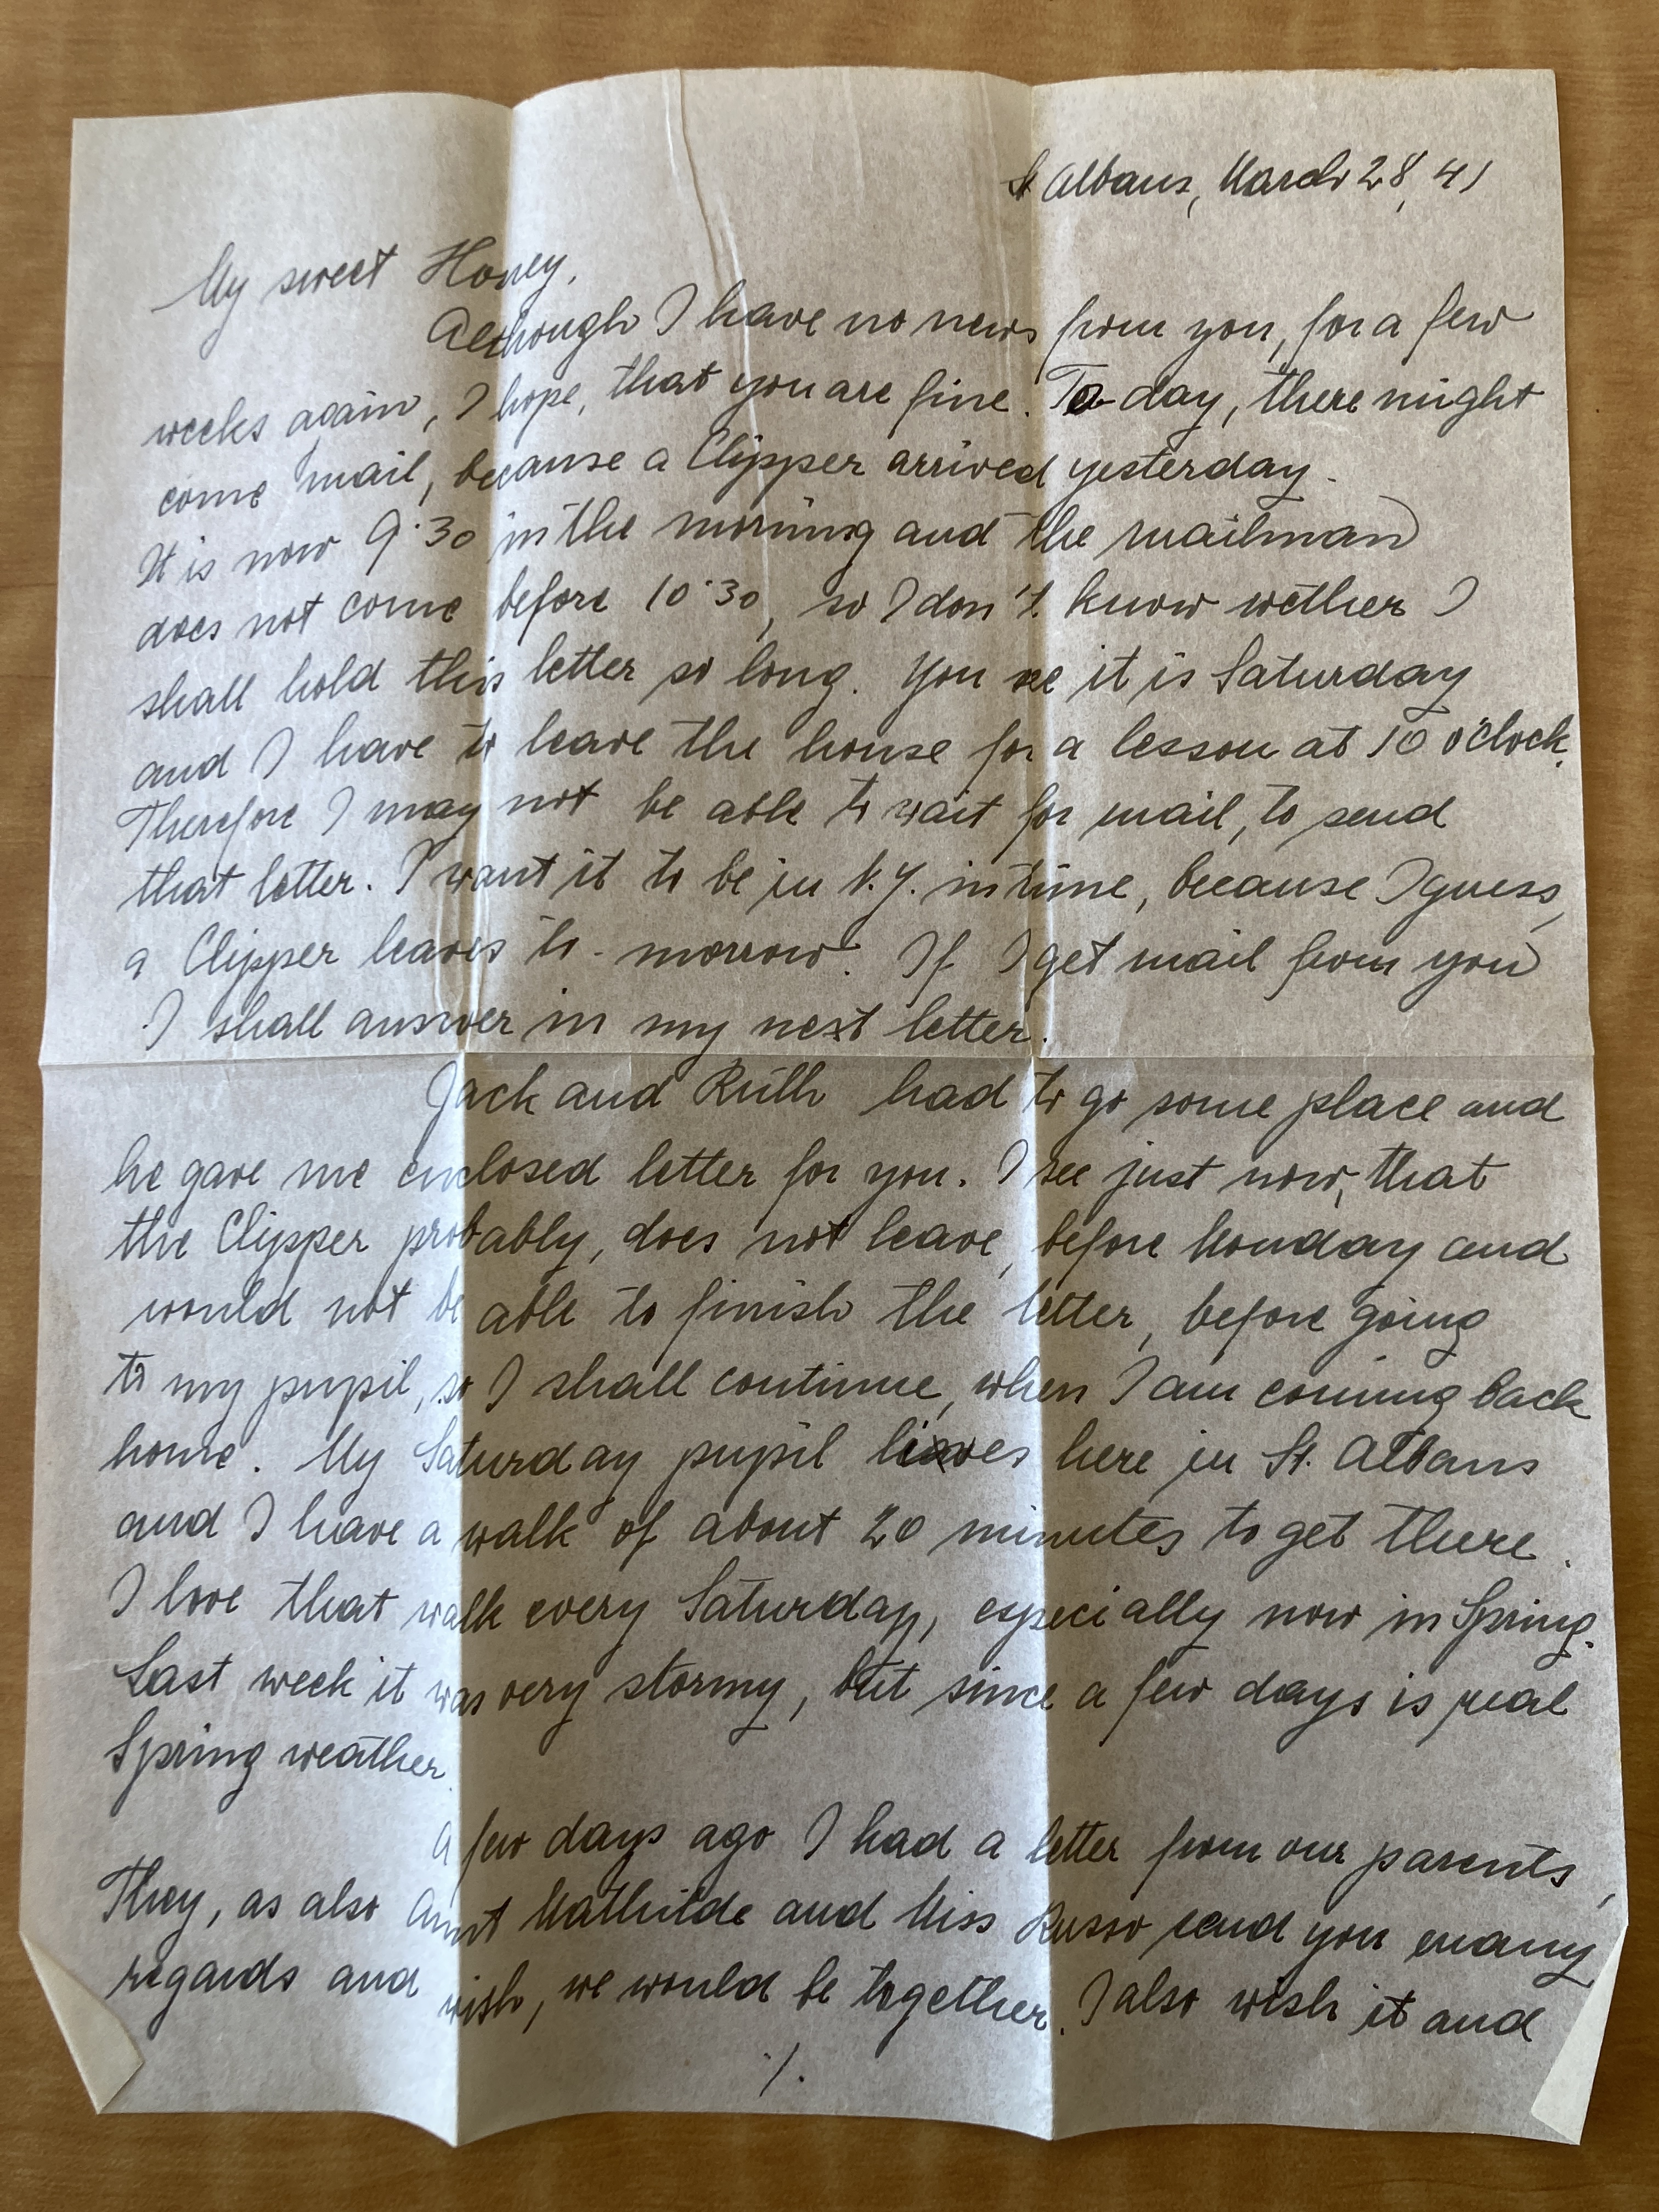 St Albans, March 28, 41
My sweet Honey,
Although I have no news from you, for a few
weeks again, I hope, that you are fine. To-day, there might
come mail, because a Clipper arrived yesterday.
It is now 9.30 in the morning and the mailman
does not come before 10.30, so I don't know wether I
shall hold this letter so long. You see it is Saturday
and I have to leave the house for a lesson at 10 o'clock.
Therefore I may not be able to wait for mail, to send
that letter. I want it to be in N.Y. in time, because I guess,
a Clipper leaves to-morrow. If I get mail from you
I shall answer in my next letter.
Jack and Ruth had to go some place and
he gave me enclosed letter for you. I see just now, that
the Clipper probably, does not leave, before Monday and
would not be able to finish the letter, before going
to my pupil, so I shall continue, when I am coming back
home. My Saturday pupil lives here in St. Albans
and I have a walk of about 20 minutes to get there.
I love that walk every Saturday, especially now in Spring.
Last week it was very stormy, but since a few days is real
Spring weather.
A few days ago I had a letter from our parents,
They, as also Aunt Mathilde and Miss Russo send you many
regards and wish, we would be together. I also wish it and
./.